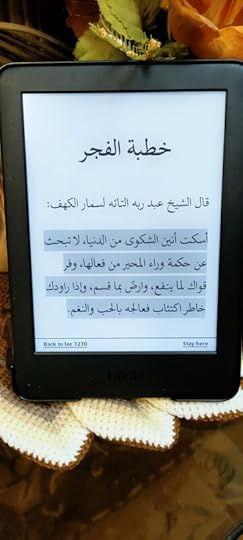 خطبة الفجر
قال الشيخ عبد ربه التائه لسمار الكهف:
أسكت أنين الشكوى من الدنيا، لا تبحث
عن حكمة وراء المحير من فعالها، وفر
قواك لما ينفع، وارضَ بما قسم، وإذا راودك
خاطر اكتئاب فعالجه بالحب والنغم.
Back to loc 1270 Stay here
kindle